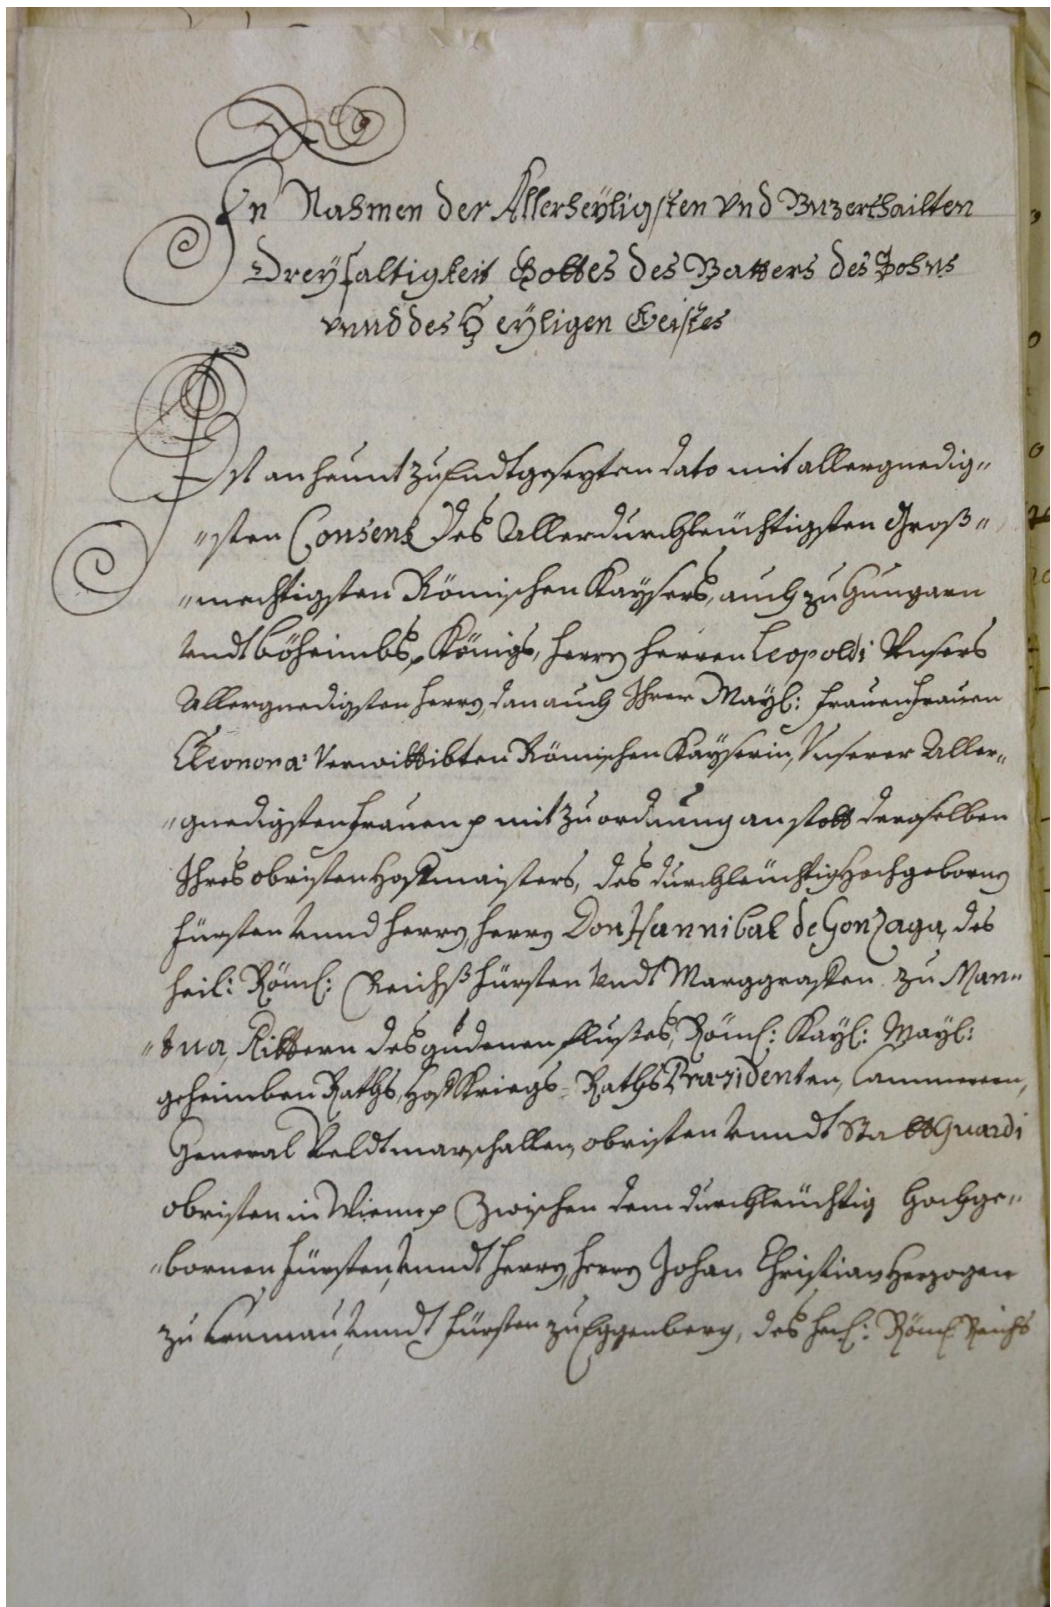 In Nahmen der Allerheÿligsten vnd Vnzerthailten
Dreyfaltigkeit Gottes des Vatters des Sohns
vnnd des Heÿligen Geistes
Ist anheunt zu Endtgesezten dato mit allergnedig„
„sten Consens Des Allerdurchleüchtigsten Groß„
„mechtigsten Römischen Kaÿsers, auch zu Hungarn
Vndt Böheimbs, Königs, Herrn Herren Leopoldi Vnsers
Allergnedigsten Herrn, dan auch Ihrer Maÿl: Frauen Frauen
Eleonora: Verwittibten Römischen Kaÿserin, Vnserer Aller„
„gnedigsten Frauen p mit Zuordnung anstatt deroselben
Ihres obristen Hoffmaisters, des durchleüchtig Hochgebornen
Fürsten Vnnd Herrn, Herrn Don Hannibal de Gonzaga, des
Heil: Röml: Reichß Fürsten Vndt Marggraffen zu Man„
„tua, Rittern des guldenen Flußes, Röml: Kaÿl: Maÿl:
geheimben Raths, Hoff Kriegs-Raths Præsidenten, Cammerern,
General Veldtmarschallen, obristen Vnndt Statt Guardi
obristen in Wienn p Zwischen dem durchleüchtig Hochge„
„bornen Fürsten, Vnndt Herrn, Herrn Johan Christian Herzogen
zu Crumau, Vnndt Fürsten zu Eggenberg, des Heil: Röml: Reichs